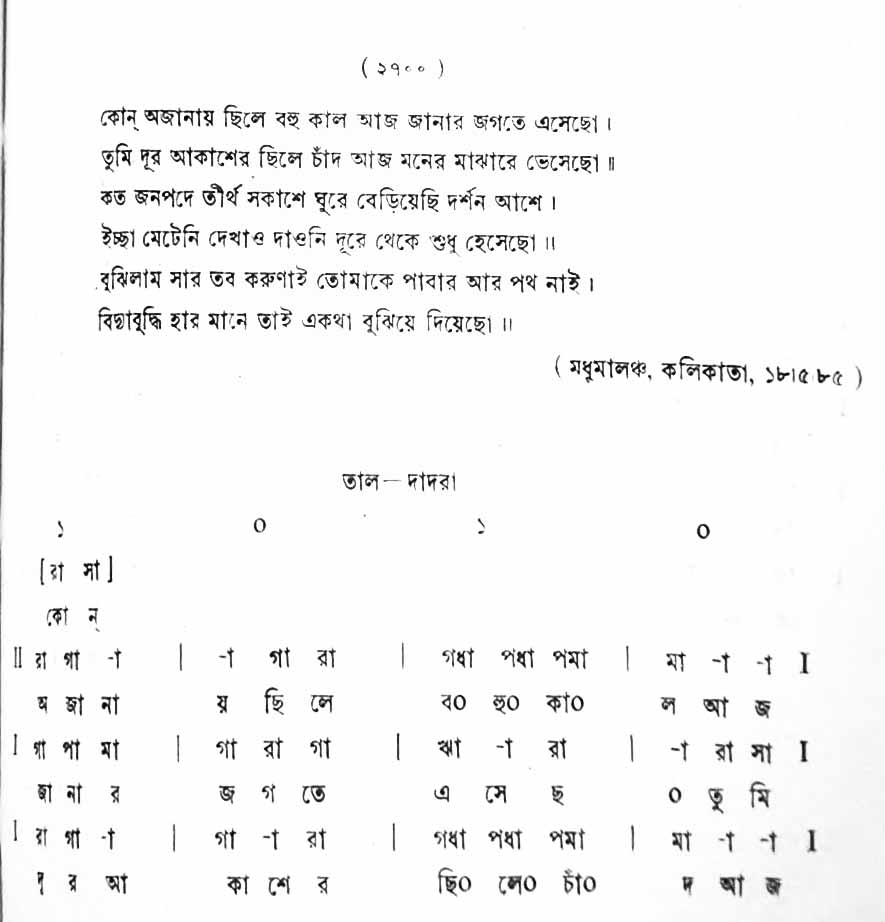 ( ২৭০০ )
কোন্ অজানায় ছিলে বহু কাল আজ জানার জগতে এসেছো ।
তুমি দূর আকাশের ছিলে চাঁদ আজ মনের মাঝারে ভেসেছো ॥
কত জনপদে তীর্থ সকাশে ঘুরে বেড়িয়েছি দর্শন আশে ।
ইচ্ছা মেটেনি দেখাও দাওনি দূরে থেকে শুধু হেসেছো ॥
বুঝিলাম সার তব করুণাই তোমাকে পাবার আর পথ নাই ।
বিদ্যাবুদ্ধি হার মানে তাই একথা বুঝিয়ে দিয়েছো ॥
( মধুমালঞ্চ, কলিকাতা, ১৮।৫ ৮৫ )
তাল — দাদরা
১ ০ ১ ০
[ রা সা ]
কো ন্
II রা গা -া | -া গা রা | গধা পধা পমা | মা -া -া I
অ জা না য় ছি লে ব০ হু০ কা০ ল আ জ
I গা পা মা | গা রা গা | ঋা -া রা | -া রা সা I
জা না র জ গ তে এ সে ছ ০ তু মি
I রা গা -া | গা -া রা | গধা পধা পমা | মা -া -া I
দূ র আ কা শে র ছি০ লে০ চাঁ০ দ আ জ